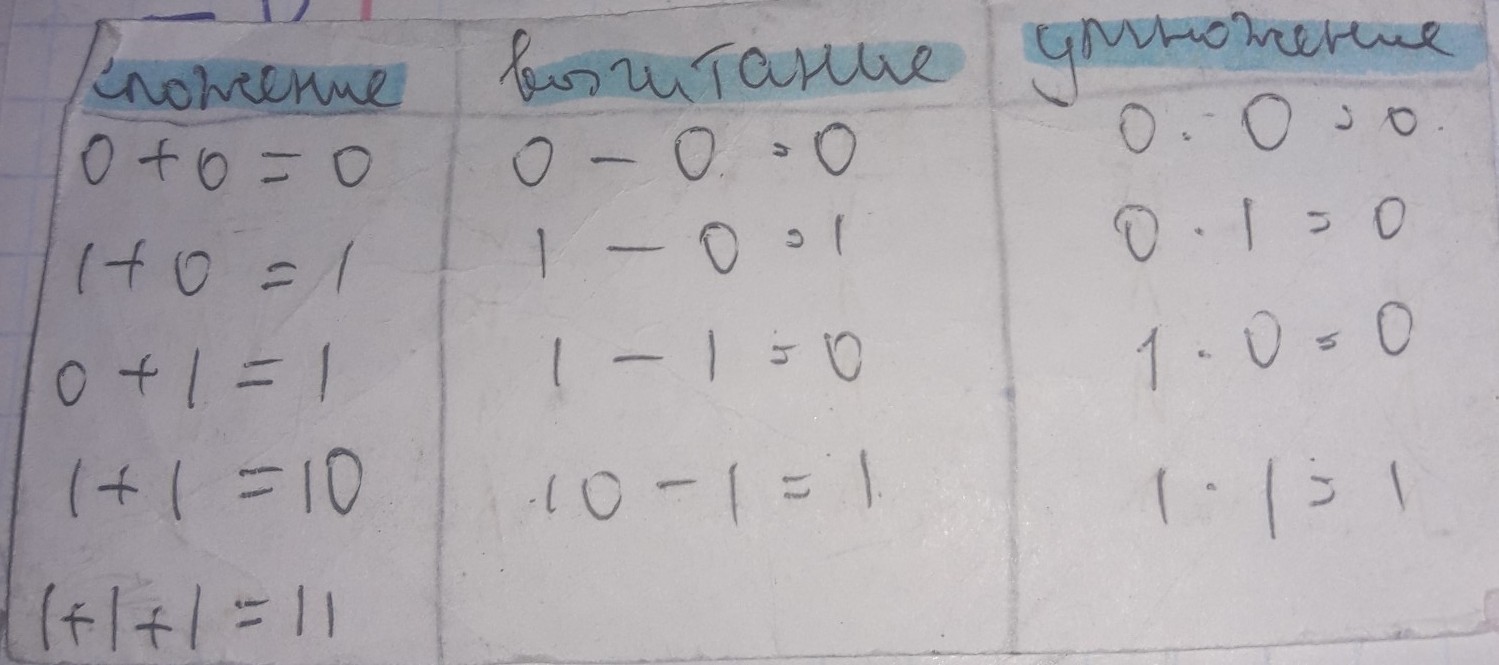 сложение вычитание умножение
0 + 0 = 0 0 - 0 = 0 0 · 0 = 0
1 + 0 = 1 1 - 0 = 1 0 · 1 = 0
0 + 1 = 1 1 - 1 = 0 1 · 0 = 0
1 + 1 = 10 10 - 1 = 1 1 · 1 = 1
1 + 1 + 1 = 11